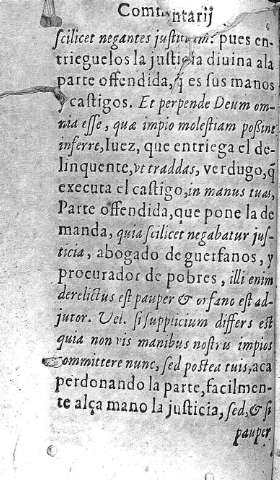 Commentarij
scilicet negantes justitiam: pues en-
trieguelos la justicia diuina ala
parte offendida, q̃ es sus manos
castigos. Et perpende Deum om-
nia esse, quæ impio molestiam possint
inferre, Iuez, que entriega el de-
linquente, vt traddas, verdugo, q̃
executa el castigo, in manus tuas,
Parte offendida, que pone la de
manda, quia scilicet negabatur jus-
ticia, abogado de guerfanos, y
procurador de pobres, illi enim
derelictus est pauper & orfano est ad-
jutor. Vel. si supplicium differs est
quia non vis manibus nostris impios
committere nunc, sed postea tuis, aca
perdonando la parte, facilmen-
te alça mano la justicia, sed, & si
pauper